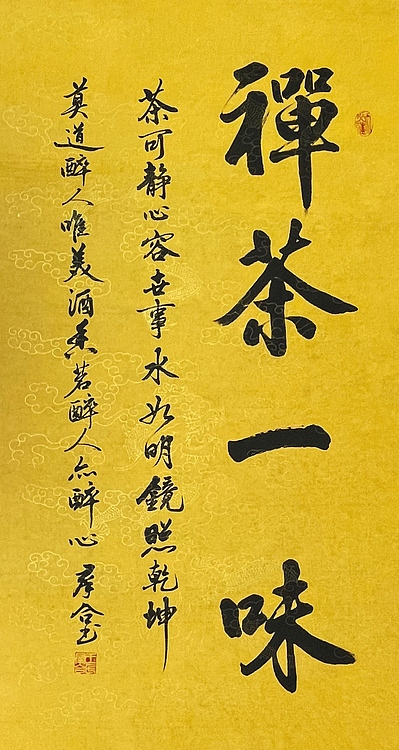 禪茶一味
茶可静心容世事水如明鏡照乾坤
莫道醉人唯美酒香茗醉人亦醉心